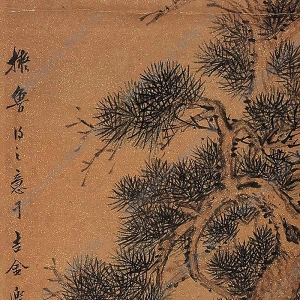 橅魯得之意于吉金